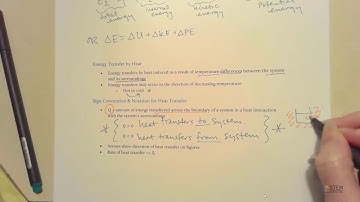 E2
total energy
internal energy
kinetic energy
potential energy
OR ΔE = ΔU + ΔKE + ΔPE
Energy Transfer by Heat
• Energy transfers by heat induced as a result of temperature differences between the system and its surroundings
• Energy transfer only occurs in the direction of decreasing temperature
○ Hot to cold
Sign Convention & Notation for Heat Transfer
• Q: amount of energy transferred across the boundary of a system in a heat interaction with the system's surroundings
Q>0 heat transfers to system
Q<0 heat transfers from system
• Arrows show direction of heat transfer on figures
• Rate of heat transfer =>